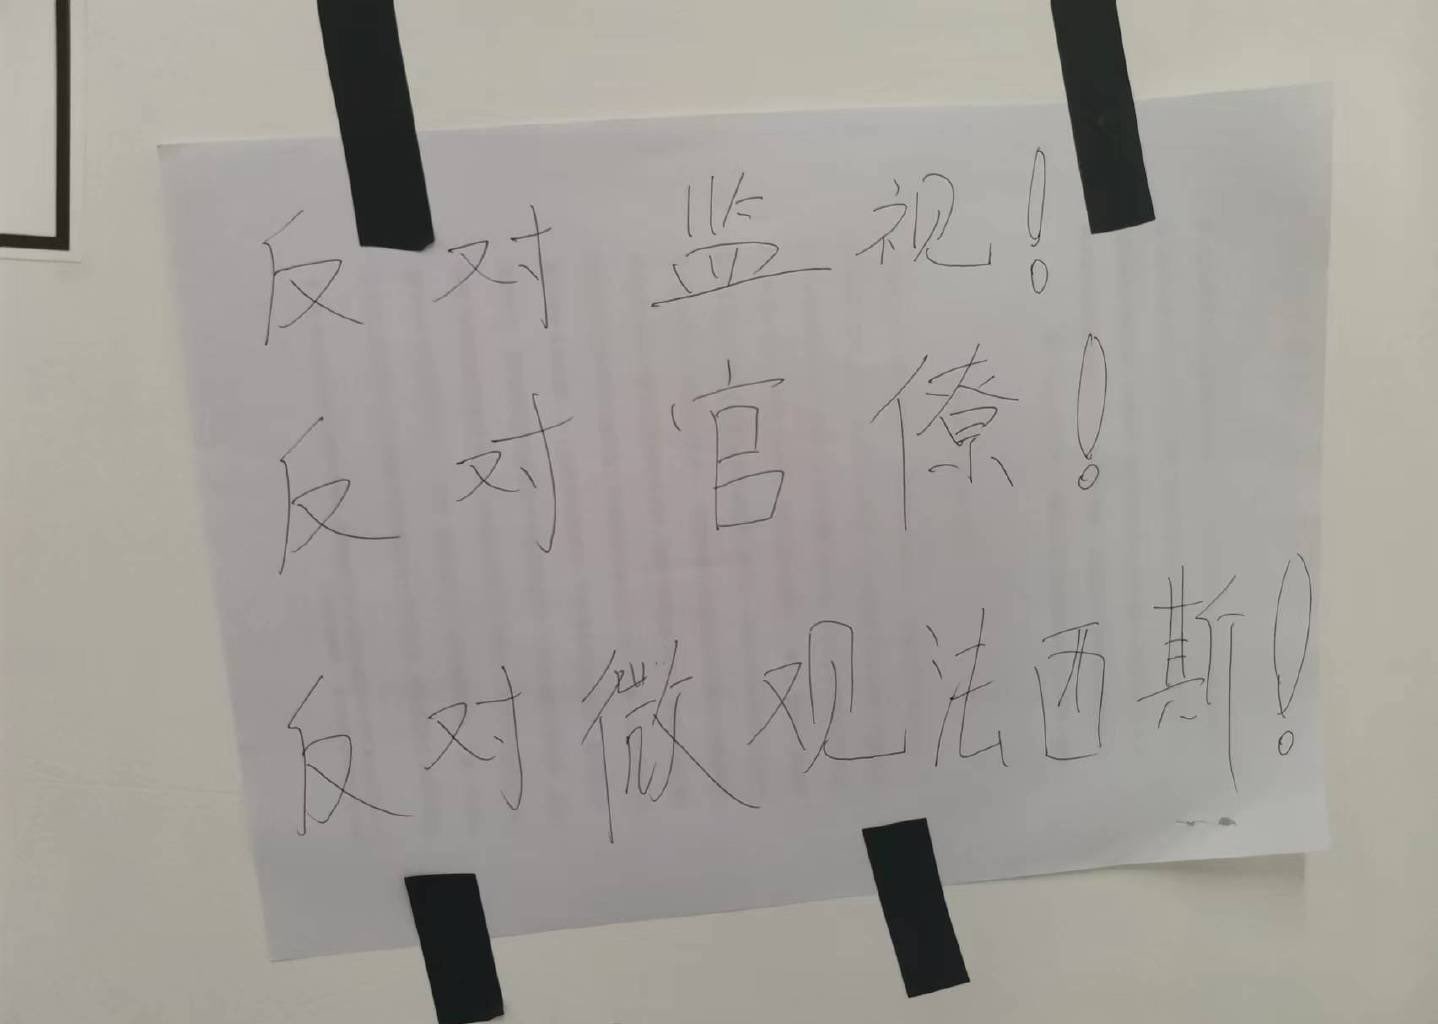 反对监视!
反对官僚!
反对微观法西斯!